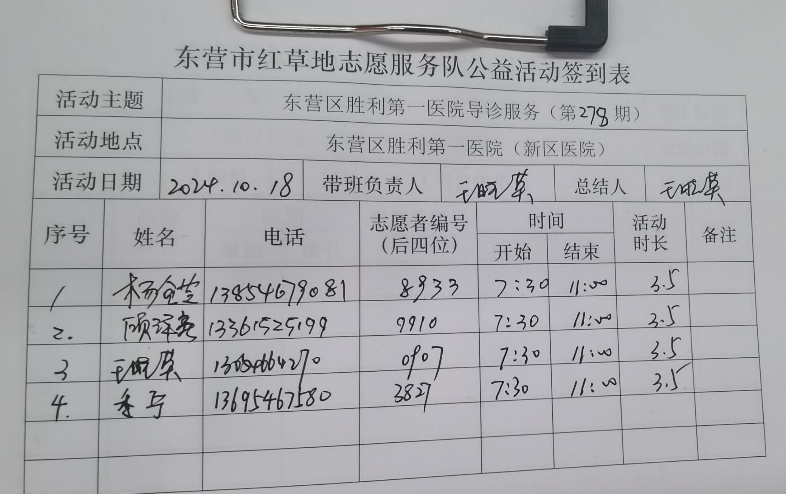 东营市红草地志愿服务队公益活动签到表
活动主题 东营区胜利第一医院导诊服务（第278期）
活动地点 东营区胜利第一医院（新区医院）
活动日期 2024.10.18 带班负责人 王旺英 总结人 王旺英
序号 姓名 电话 志愿者编号（后四位） 时间 开始 结束 活动时长 备注
1 杨金芝 13854679081 8933 7:30 11:00 3.5
2. 13361525199 9910 7:30 11:00 3.5
3 王旺英 13054664270 0907 7:30 11:00 3.5
4. 13695467580 3827 7:30 11:00 3.5